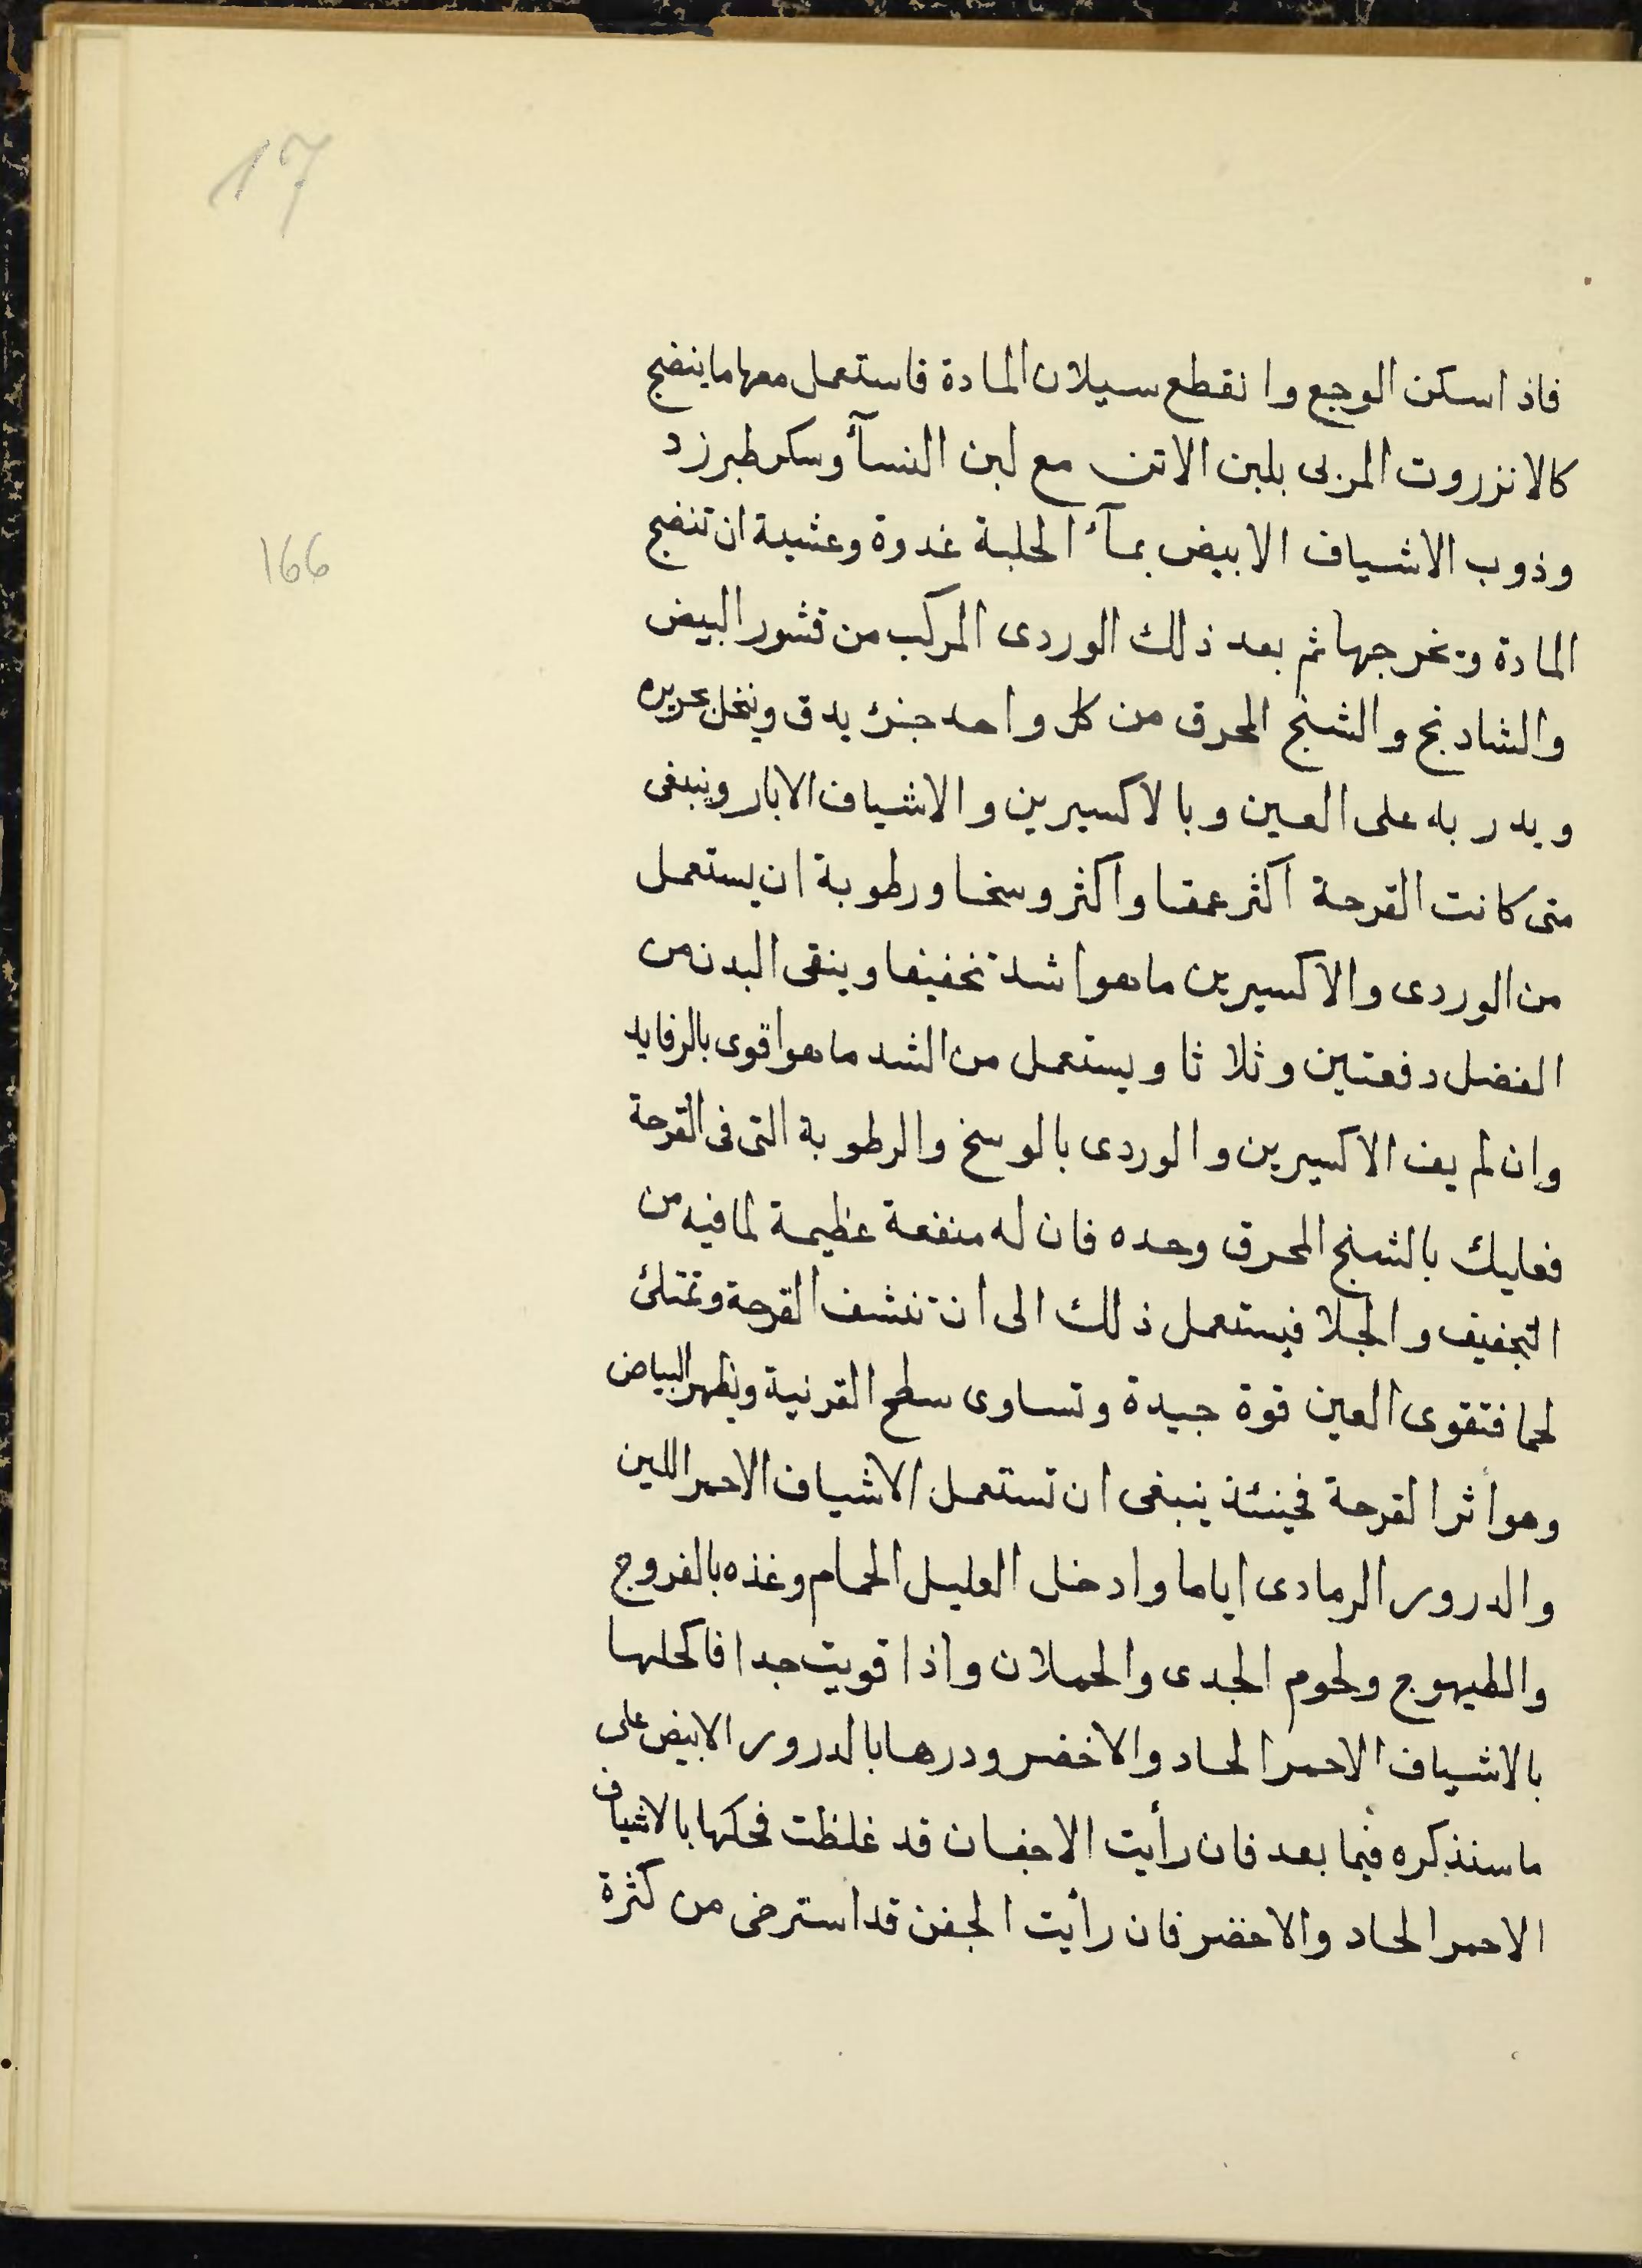 17
فاذا سكن الوجع وانقطع سيلان المادة فاستعمل معها ما ينضج
كالانزروت المربى بلبن الاتن مع لبن النسآء وسكر طبرزد
وذوب الاشياف الابيض بمآء الحلبة غدوة وعشية ان تنضج
166
المادة ويخرجها ثم بعد ذلك الوردى المركب من قشور البيض
والشادنج والشنج المحرق من كل واحد جزء يدق وينخل بحريره
ويدر به على العين وبالاكسيرين والاشياف الابار وينبغى
متى كانت القرحة اكثر عمقا واكثر وسخا ورطوبة ان يستعمل
من الوردى والاكسيرين ما هوا شد تخفيفا وينقى البدن من
الفضل دفعتين وثلاثا ويستعمل من الشد ما هو اقوى بالرفايد
وان لم يف الاكسيرين والوردى بالوسخ والرطوبة التى فى القرحة
فعليك بالشنج المحرق وحده فان له منفعة عظيمة لما فيه من
التجفيف والجلا فيستعمل ذلك الى ان تنشف القرحة وتمتلئ
لحما فتقوى العين قوة جيدة وتساوى سطح القرنية ويظهر البياض
وهو أثر القرحة فحينئذ ينبغى ان تستعمل الاشياف الاحمر اللين
والدرور الرمادى اياما وادخل العليل الحمام وغذه بالفروج
والطيهوج ولحوم الجدى والحملان واذا قويت جدا فاكحلها
بالاشياف الاحمر الحاد والاخضر ودرها بالدرور الابيض على
ما سنذكره فيما بعد فان رأيت الاجفان قد غلظت فحكها بالاشياف
الاحمر الحاد والاخضر فان رأيت الجفن قد استرخى من كثرة